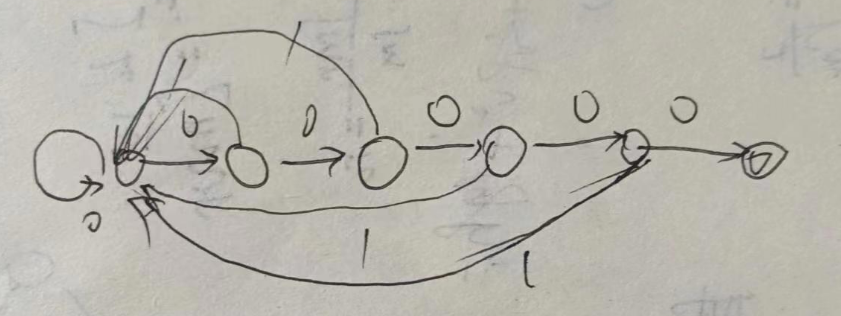 1
1
0 0 0 0 0
0
1
1